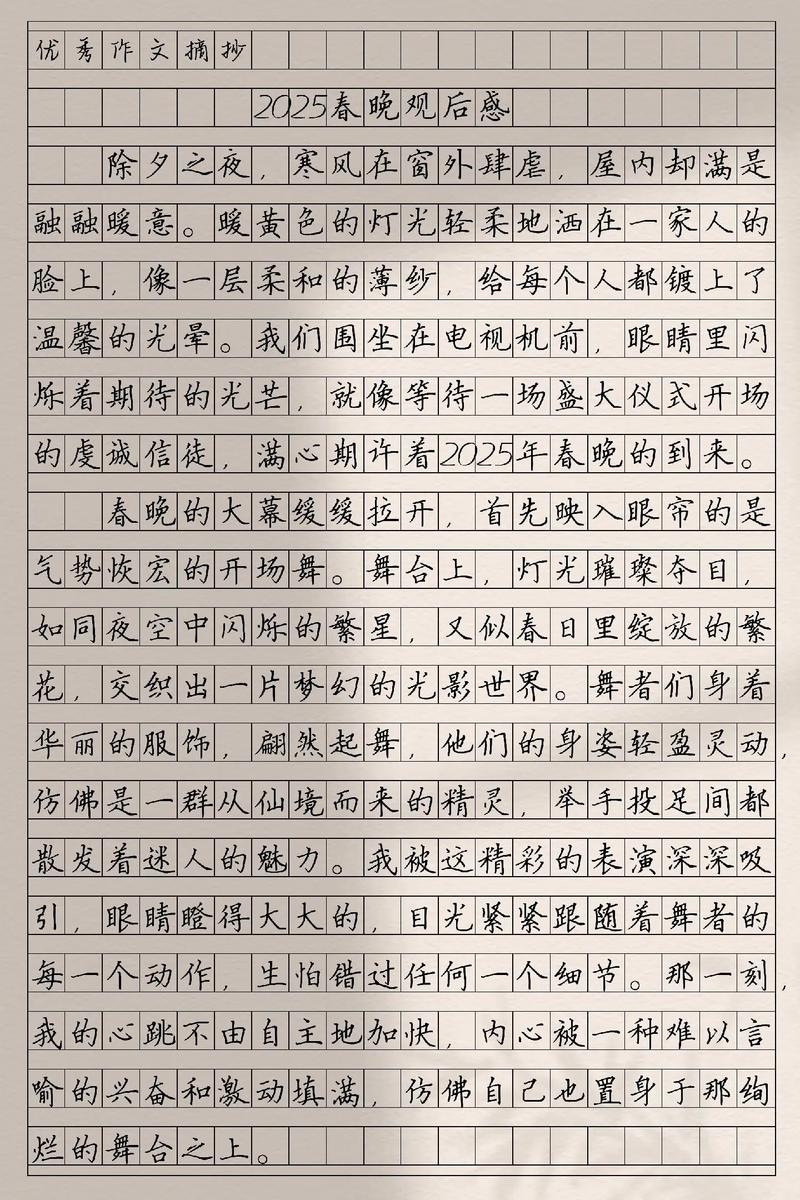 优秀作文摘抄
2025春晚观后感
除夕之夜，寒风在窗外肆虐，屋内却满是
融融暖意。暖黄色的灯光轻柔地洒在一家人的
脸上，像一层柔和的薄纱，给每个人都镀上了
温馨的光晕。我们围坐在电视机前，眼睛里闪
烁着期待的光芒，就像等待一场盛大仪式开场
的虔诚信徒，满心期许着2025年春晚的到来。
春晚的大幕缓缓拉开，首先映入眼帘的是
气势恢宏的开场舞。舞台上，灯光璀璨夺目，
如同夜空中闪烁的繁星，又似春日里绽放的繁
花，交织出一片梦幻的光影世界。舞者们身着
华丽的服饰，翩然起舞，他们的身姿轻盈灵动，
仿佛是一群从仙境而来的精灵，举手投足间都
散发着迷人的魅力。我被这精彩的表演深深吸
引，眼睛瞪得大大的，目光紧紧跟随着舞者的
每一个动作，生怕错过任何一个细节。那一刻，
我的心跳不由自主地加快，内心被一种难以言
喻的兴奋和激动填满，仿佛自己也置身于那绚
烂的舞台之上。